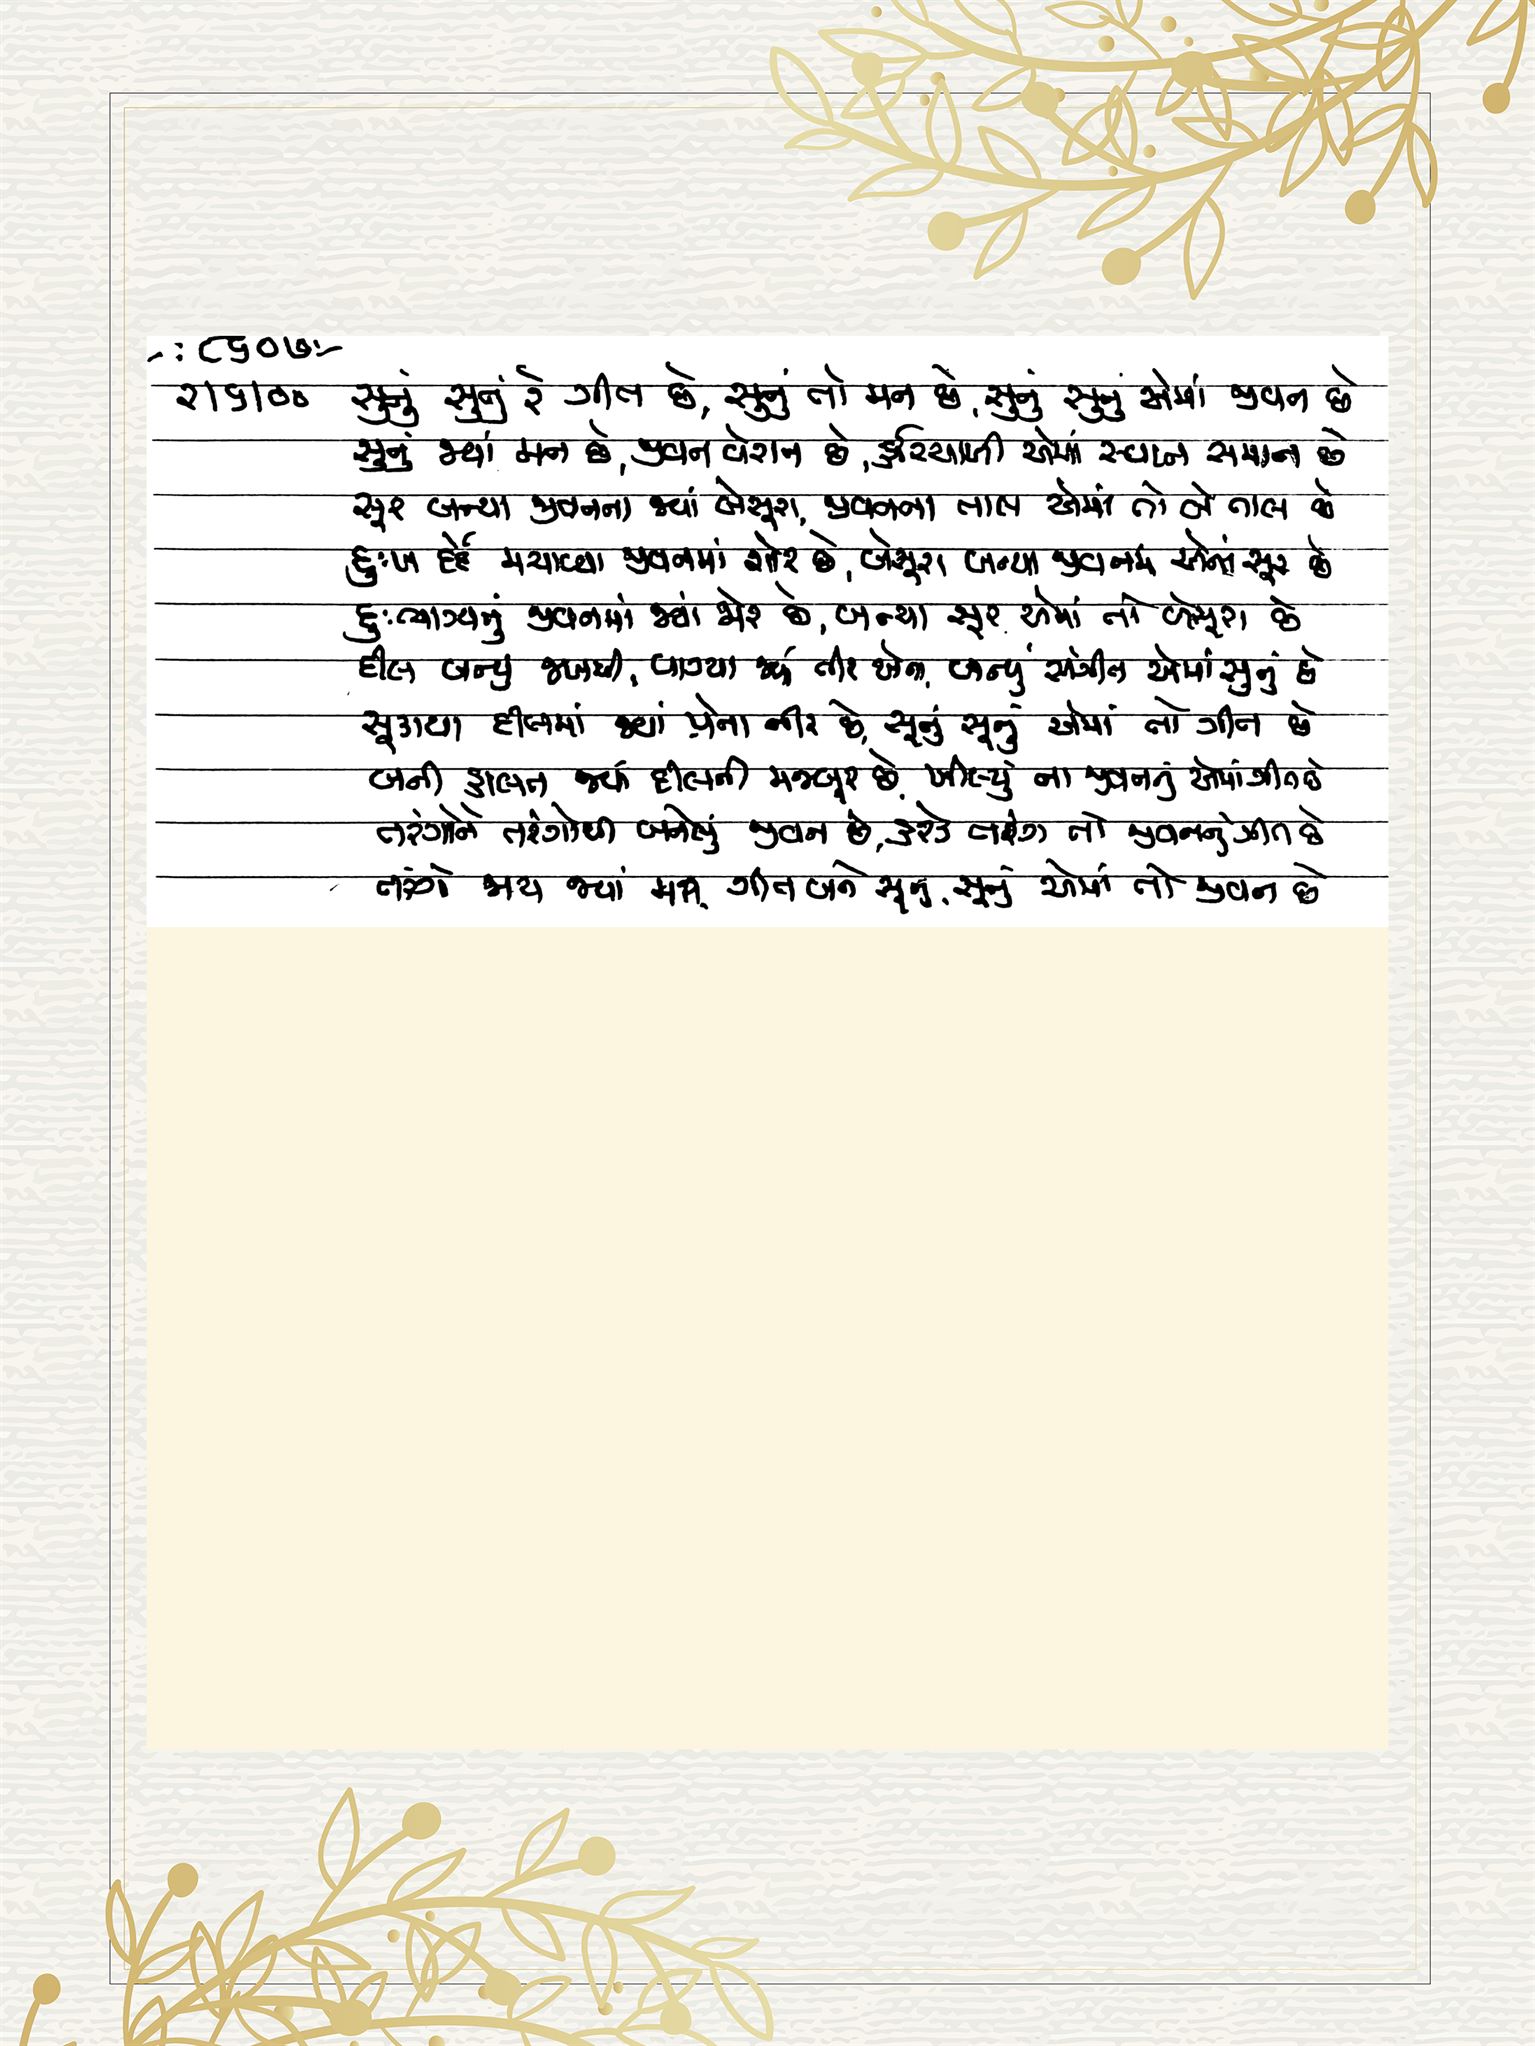 -: ૮૬૦૭:-
૨/૬/૦૦ સુનું સુનું રે ગીત છે, સુનું તો મન છે, સુનું સુનું એમાં જીવન છે
સુનું જ્યાં મન છે, જીવન વેરાન છે, હરિયાળી એમાં સ્વપ્ન સમાન છે
સૂર બન્યા જીવનના જ્યાં બેસૂરા, જીવનના તાલ એમાં તો બે તાલ છે
દુઃખ દર્દે મચાવ્યા જીવનમાં શોર છે, બેસૂરા બન્યા જીવનમાં એના સૂર છે
દુઃભાગ્યનું જીવનમાં જ્યાં જોર છે, બન્યા સૂર એમાં તો બેસૂરા છે
દીલ બન્યું જખ્મી, વાગ્યા જ્યાં તીર એના, બન્યું સંગીત એમાં સુનું છે
સૂકાયા દીલમાં જ્યાં પ્રેમના નીર છે, સૂનું સૂનું એમાં તો ગીત છે
બની હાલત જ્યાં દીલની મજબૂર છે, ખીલ્યું ના જીવનનું એમાં ગીત છે
તરંગોને તરંગોથી બનેલું જીવન છે, હરેક તરંગ તો જીવનનું ગીત છે
તરંગો જાય જ્યાં ગીત બને સૂનું, સૂનું એમાં તો જીવન છે